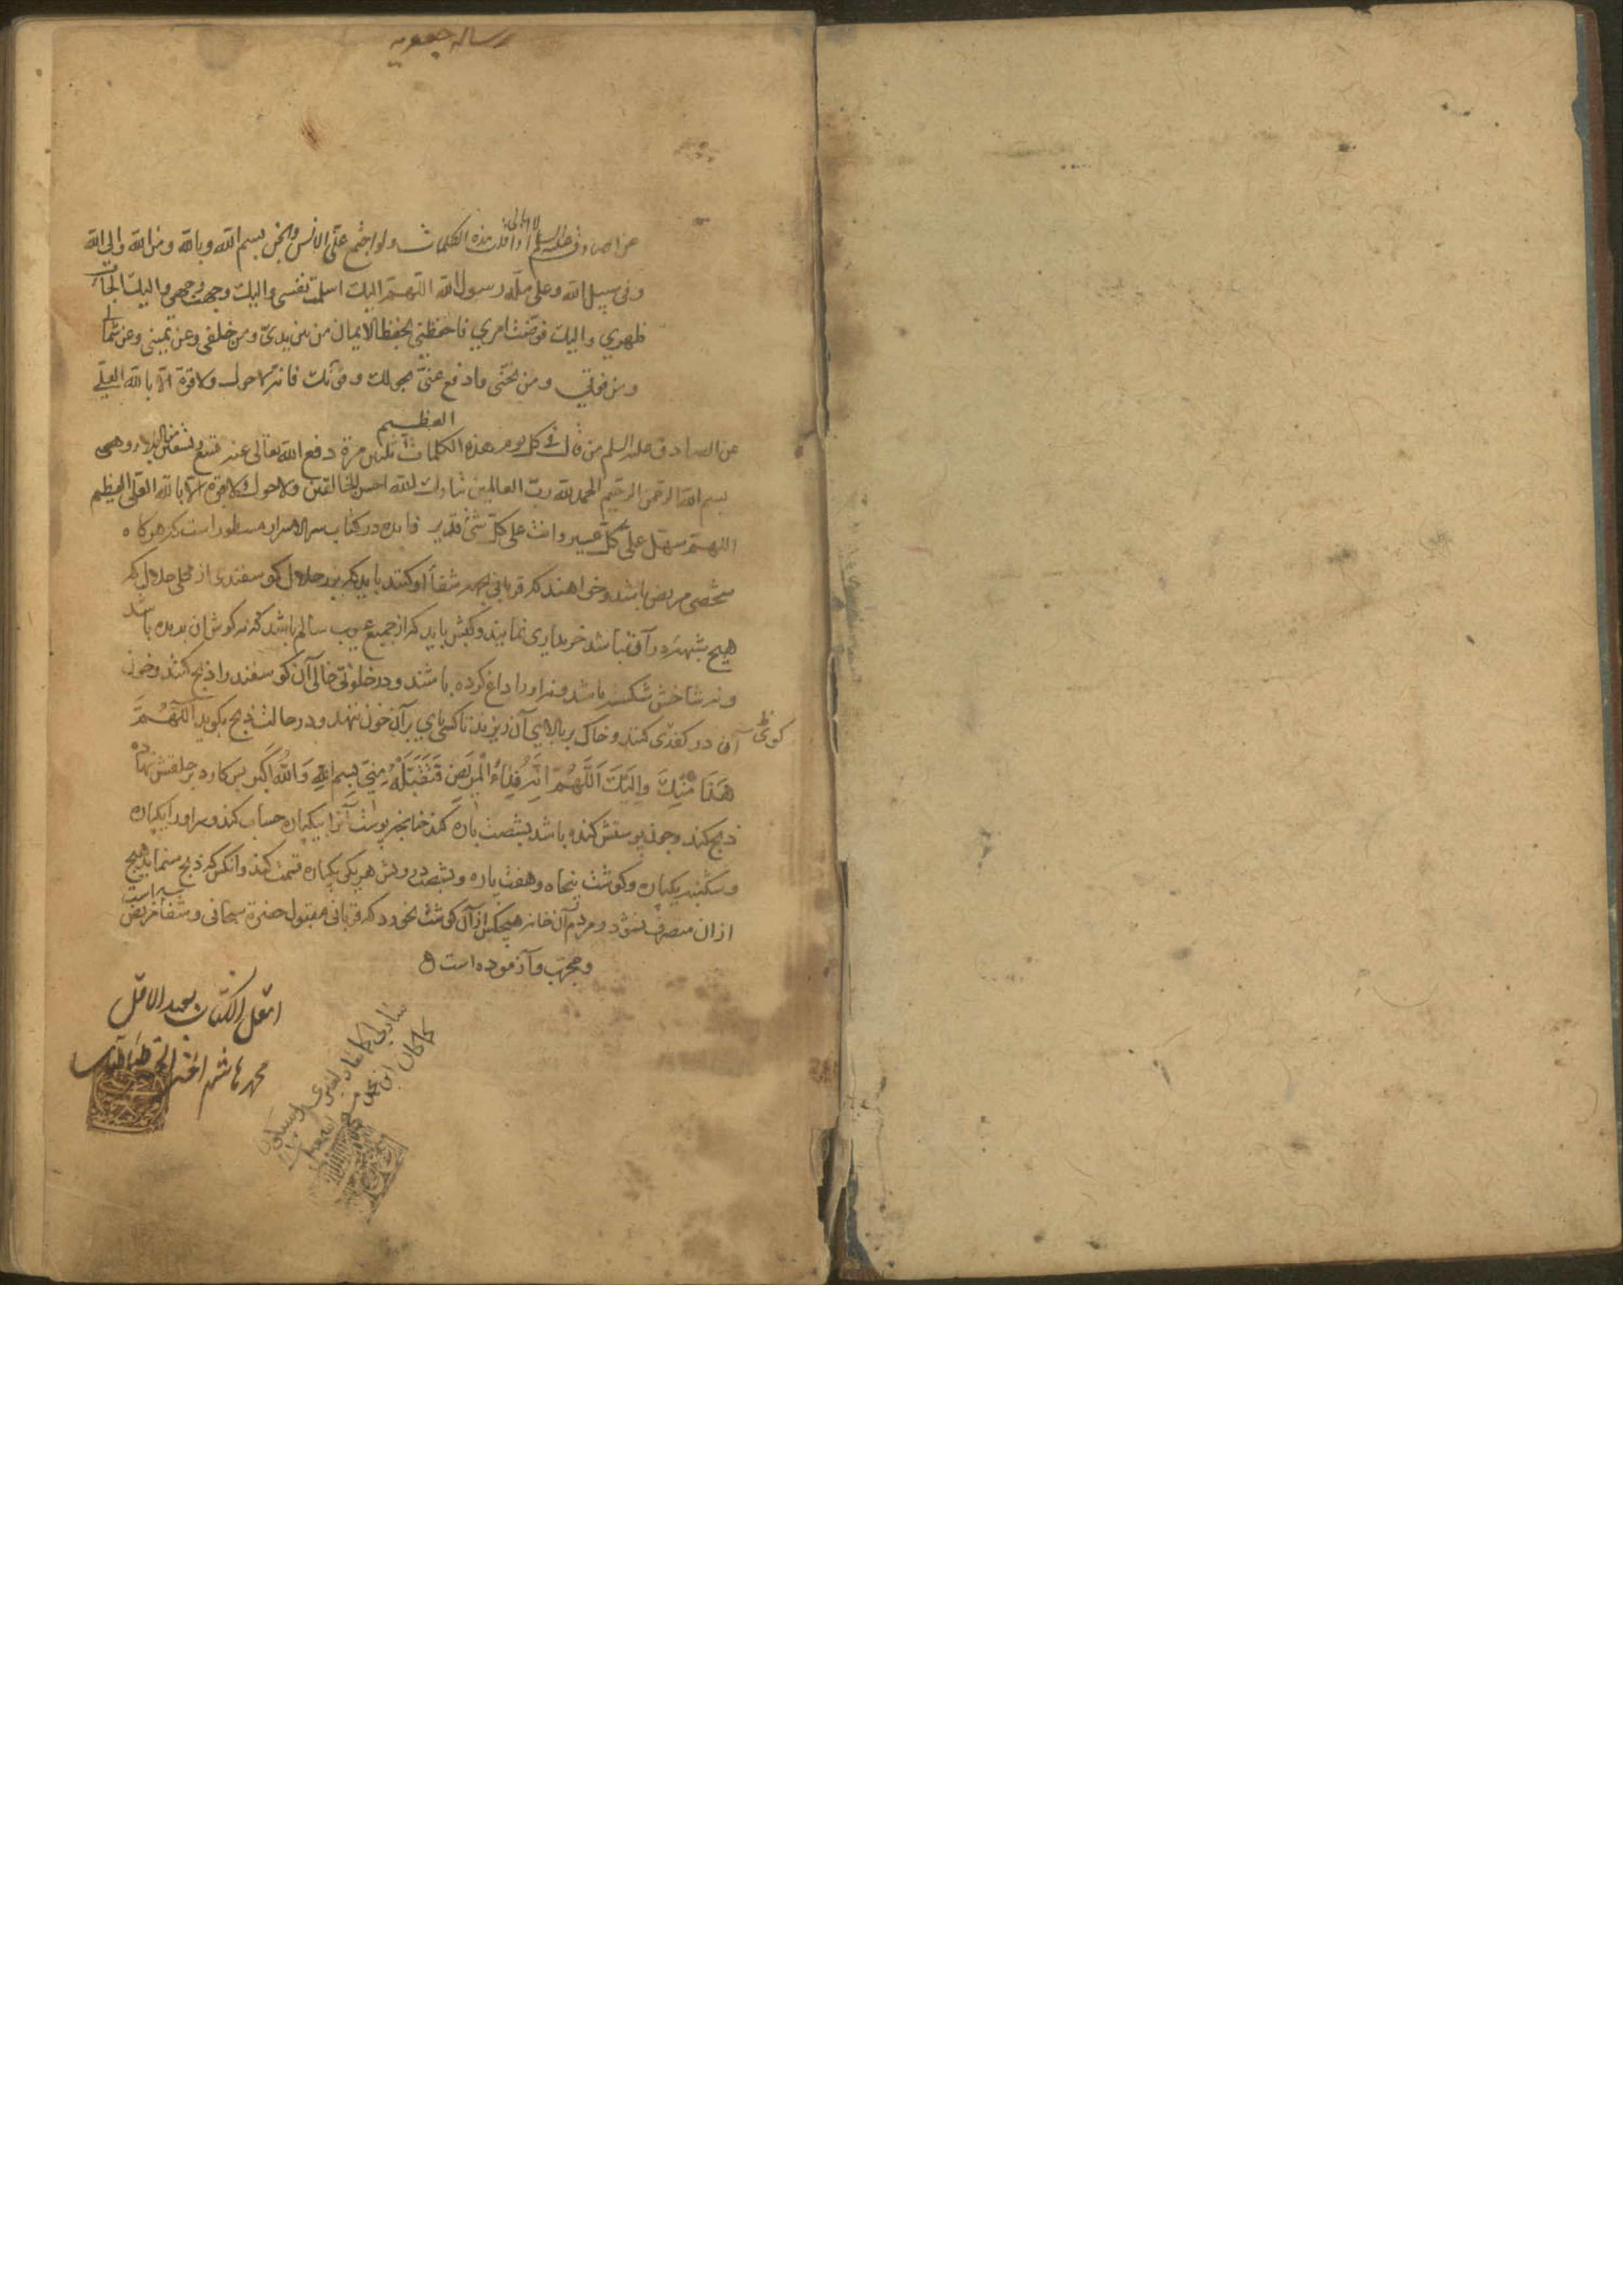 رساله جعفریه
لا ابالی اذا
عن الصادق علیه السلم قلت هذه الکلمات ولو اجتمع علیّ الانس والجن بسم الله وبالله ومن الله والی الله
وفی سبیل الله وعلی ملّة رسول الله اللهمّ الیک اسلمت نفسی والیک وجهت وجهی والیک الجات
ظهری والیک فوّضت امری فاحفظنی بحفظ الایمان من بین یدیّ ومن خلفی وعن یمینی وعن شمالی
ومن فوقی ومن تحتی وادفع عنّی بحولک وقوّتک فانه لا حول ولا قوة الّا بالله العلی
العظیم
عن الصادق علیه السلم من قال فی کل یوم هذه الکلمات ثلثین مرة دفع الله تعالی عنه تسع وتسعین من البلاء وهی
بسم الله الرحمن الرحیم الحمد لله ربّ العالمین تبارک الله احسن الخالقین ولا حول ولا قوة الّا بالله العلی العظیم
اللهمّ سهّل علیّ کلّ عسیر وانت علی کلّ شیٔ قدیر فایده در کتاب سرالاسرار مسطور است که هرکاه
شخصی مریض باشد وخواهند که قربانی بجهه شفاء او کنند باید که بزر حلال کوسفندی از محلی حلال که
هیچ شبهه در آن نباشد خریداری نمایند وکبش باید که از جمیع عیوب سالم باشد که نه کوش ان بریده باشد
ونه شاخش شکسته باشد ونه او را داغ کرده باشند ودر خلوتی خالی آن کوسفند را ذبح کنند وخون
آن در کودی کنند وخاک بر بالای آن ریزند تا کسی پای بر آن خون ننهد ودر حالت ذبح بکوید اَللّهُمَّ
هَذَا مِنْکَ وَاِلَیْکَ اَللّهُمَّ اِنَّهُ فِدَاءُ الْمَرِیضِ فَتَقَبَّلْهُ مِنّی بِسمِ اللهِ وَاللهُ اَکبَر پس کارد بر حلقش نهاده
ذبح کند وچون پوستش کنده باشد بشصت پاره کند چنانچه پوست آنرا بیکپاره حساب کند وسر او را یکپاره
وشکنبه یکپاره وکوشت پنجاه وهفت پاره وبشصت درویش هر یکی یکپاره قسمت کند وانکس که ذبح مینماید هیچ
از ان متصرف نشود ومردم آن خانه هیچکس از آن کوشت نخورد که قربانی مقبول حضرة سبحانی وشفاء مریض است
ومجرب وآزموده است
اقل الکتاب بعید الاقل
محمد هاشم